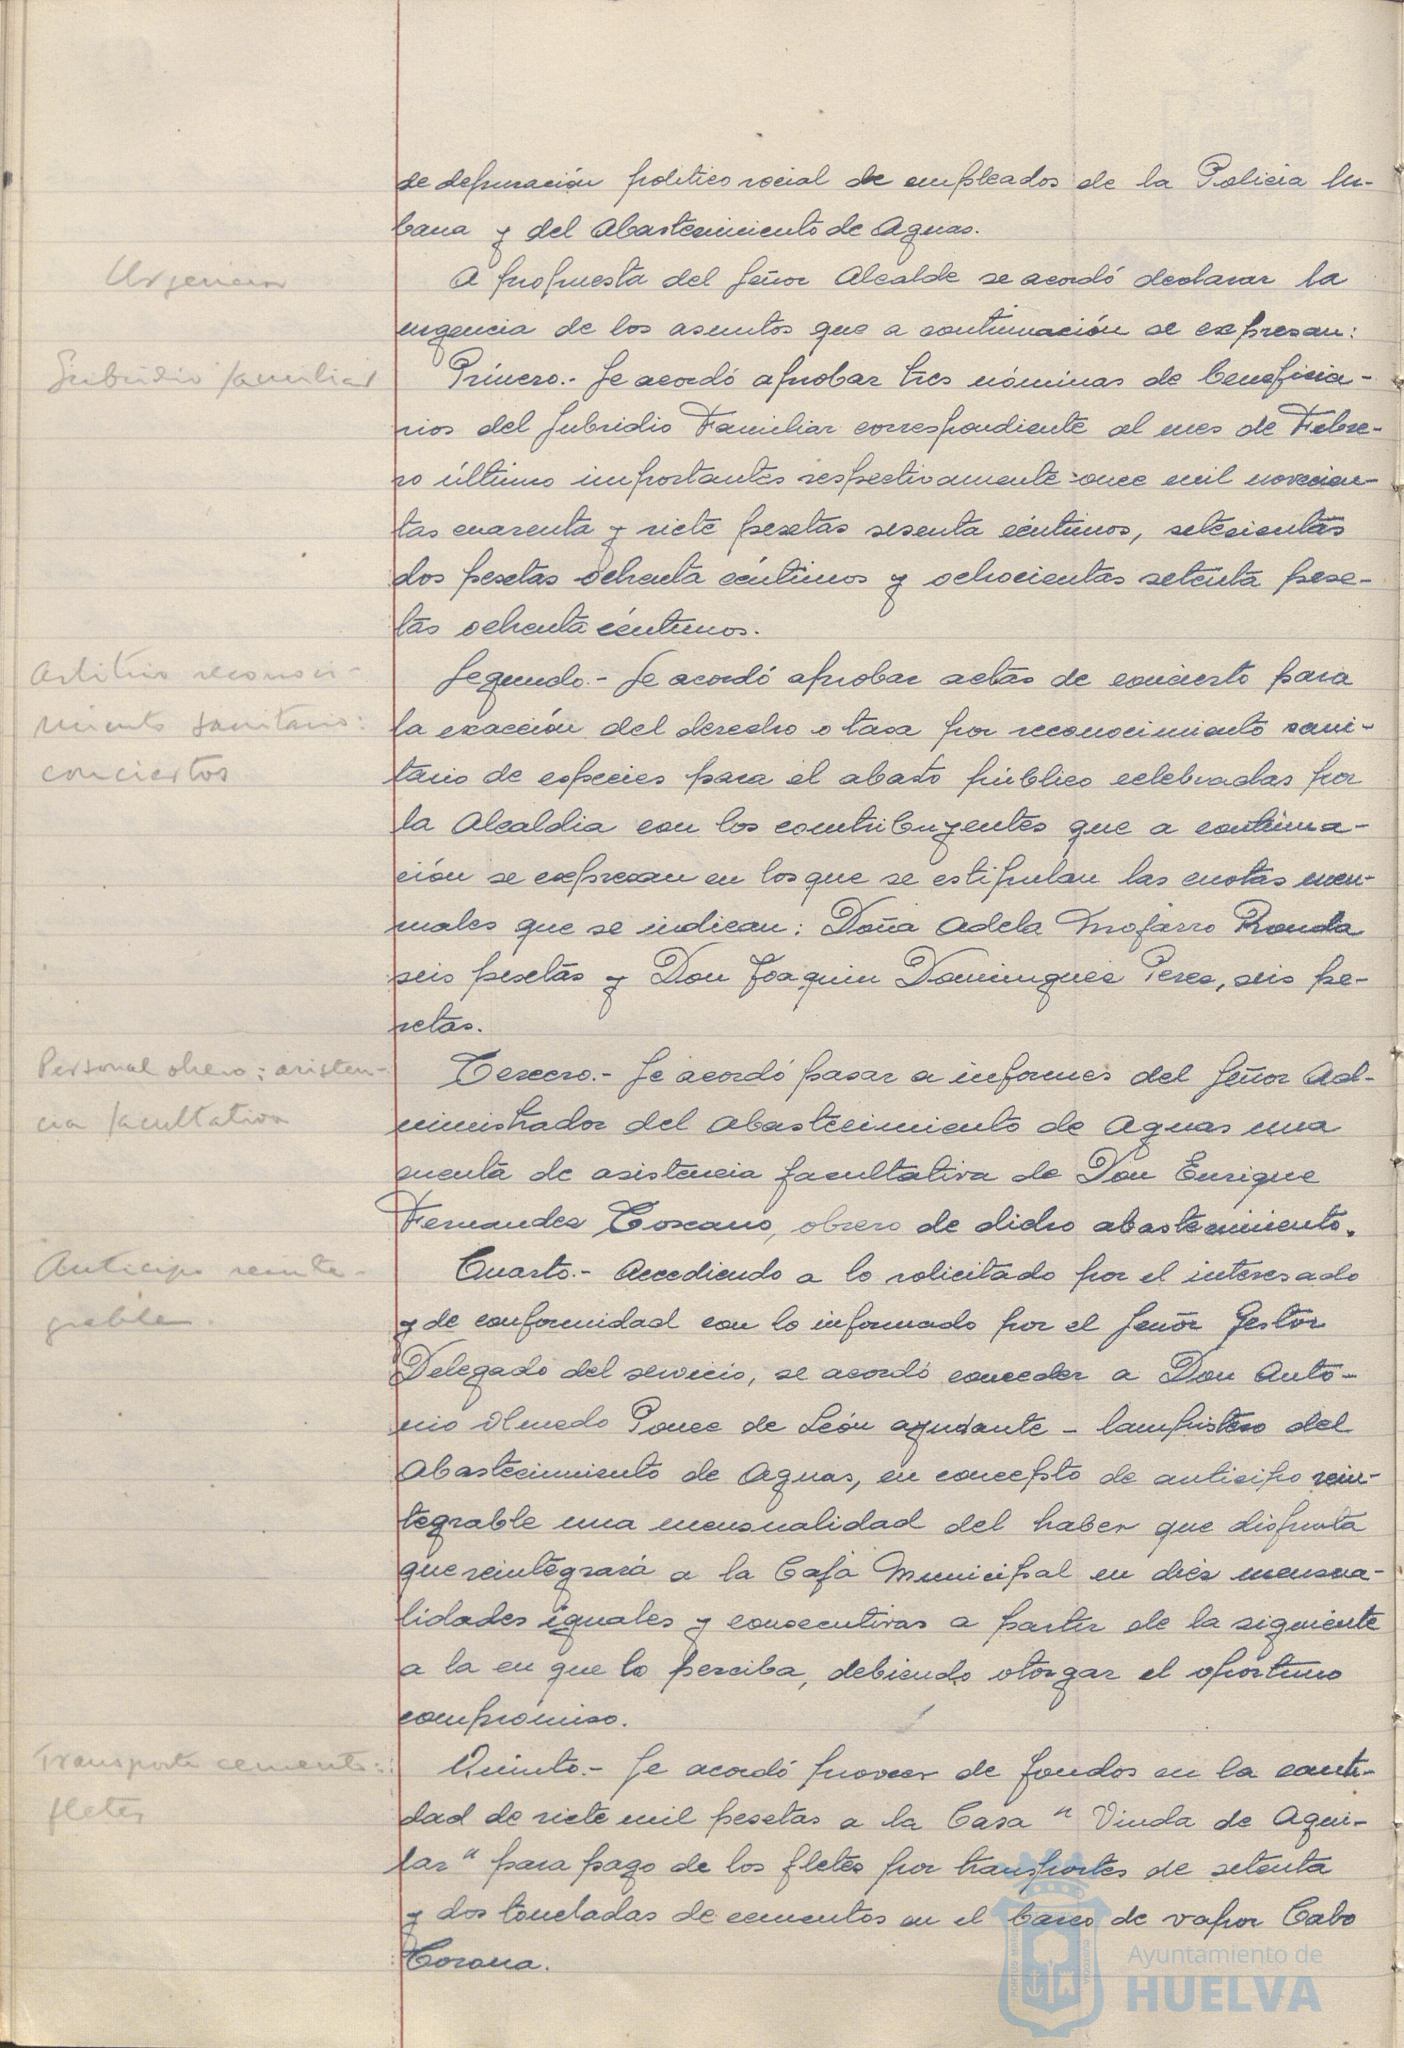 de depuración politico social de empleados de la Policia Ur-
bana y del Abastecimiento de Aguas.
Urgencia
A propuesta del Señor Alcalde se acordó declarar la
urgencia de los asuntos que a continuación se expresan:
Subsidio familiar
Primero.- Se acordó aprobar tres nóminas de beneficia-
rios del Subsidio Familiar correspondiente al mes de Febre-
ro último importantes respectivamente once mil novecien-
tas cuarenta y siete pesetas sesenta céntimos, setecientas
dos pesetas ochenta céntimos y ochocientas setenta pese-
tas ochenta céntimos.
Arbitrio reconoci-
miento sanitario:
conciertos
Segundo.- Se acordó aprobar actas de concierto para
la exacción del derecho o tasa por reconocimiento sani-
tario de especies para el abasto público celebradas por
la Alcaldia con los contribuyentes que a continua-
ción se expresan en los que se estipulan las cuotas men-
suales que se indican: Doña Adela Mojarro Ronda
seis pesetas y Don Joaquin Dominguez Perez, seis pe-
setas.
Personal obrero: asisten-
cia facultativa
Tercero.- Se acordó pasar a informes del Señor Ad-
ministrador del Abastecimiento de Aguas una
cuenta de asistencia facultativa de Don Enrique
Fernandez Toscano, obrero de dicho abastecimiento.
Anticipo reinte-
grable.
Cuarto.- Accediendo a lo solicitado por el interesado
y de conformidad con lo informado por el Señor Gestor
Delegado del servicio, se acordó conceder a Don Anto-
nio Olmedo Ponce de León ayudante - lampistero del
Abastecimiento de Aguas, en concepto de anticipo rein-
tegrable una mensualidad del haber que disfruta
que reintegrará a la Caja Municipal en diez mensua-
lidades iguales y consecutivas a partir de la siguiente
a la en que lo perciba, debiendo otorgar el oportuno
compromiso.
Transporte cemento:
fletes
Quinto.- Se acordó proveer de fondos en la canti-
dad de siete mil pesetas a la Casa "Viuda de Agui-
lar" para pago de los fletes por transportes de setenta
y dos toneladas de cementos en el barco de vapor Cabo
Corona.
Ayuntamiento de
HUELVA